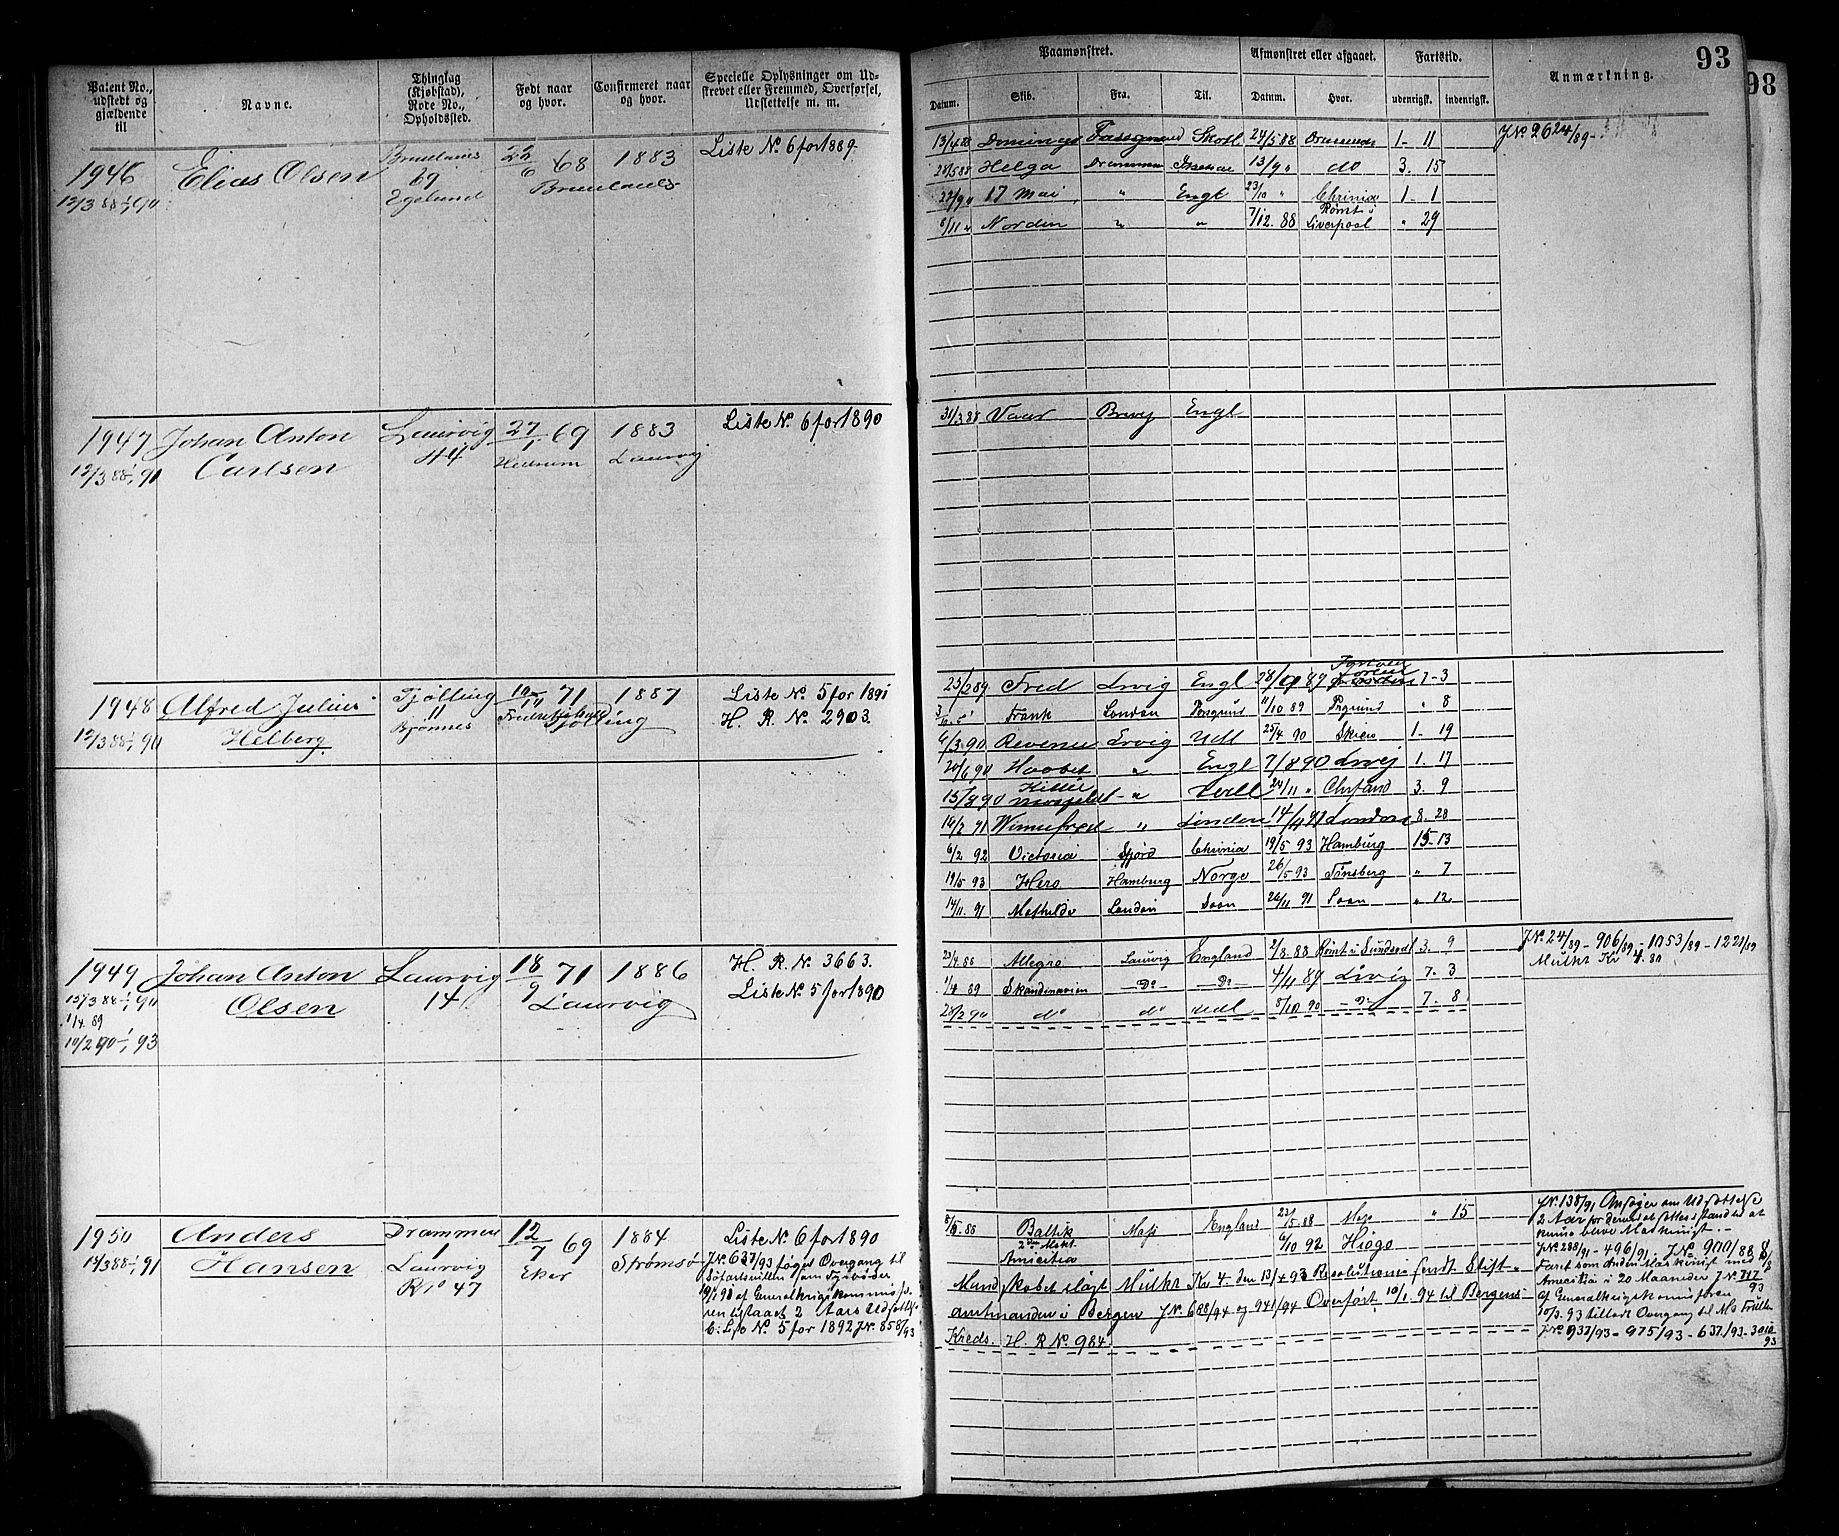 93
98
Patent No., udstedt og gjældende til
Navne.
Thinglag (Kjøbstad), Rode No., Opholdssted.
Født naar og hvor.
Confirmeret naar og hvor.
Specielle Oplysninger om Udskrevet eller Fremmed, Overførsel, Udslettelse m. m.
Paamønstret.
Afmønstret eller afgaaet.
Fartstid.
Anmærkning.
Datum. Skib. Fra. Til. Datum. Hvor. udenrigsk. indenrigsk.
1946 Elias Olsen Brunlanes 22/6 68 1883 Liste No. 6 for 1889.
12/3 88 1/1 90 69 Brunlanes
13/4 88 Domingo 24/5 88 1- 11 J No 2624/89
28/5 88 Helga Drammen 13/9 " do 3. 15
22/9 " 17 Mai " Engl 23/10 " Chrinia 1- 1
6/11 " Norden " " 7/12. 88 Rømt i Liverpool " 29
1947 Johan Anton Laurvig 27/1 69 1883 Liste No. 6 for 1890
12/3 88 1/1 91 Carlsen 44 Hedrum Laurvig
31/3 88 Vaar Brevig Engl
1948 Alfred Julius Tjølling 71 1887 Liste No. 5 for 1891
12/3 88 1/1 90 Helberg 11 Bjønnes Tjølling H. R. No. 2903.
23/2 89 Fred Lrvig Engl 28/9 89 7-3
Frank London Porsgrund 11/10 89 Prgrund " 8
6/3 90 Revenue Lrvig Udl 25/4 90 Skien 1- 19
20/6 90 Haabet " Engl 7/8 90 Lrvig 1. 17
15/8 90 " Udl 24/11 " Chrsand 3. 9
14/2 91 Winnefred " London 14/ 91 London 8. 28
6/2 92 Victoria Chrinia 19/5 93 Hamburg 15-13
19/5 93 Hero Hamburg Norge 26/5 93 Tønsberg " 7
14/11. 91 Mathilde London Soon 26/11 91 Soon " 12
1949 Johan Anton Laurvig 18/9 71 1886 H. R. No. 3663.
13/3 88 1/1 90 Olsen 14 Laurvig Liste No. 5 for 1890
1/4 89
10/2 90 1/1 93
23/4 88 Allegro Laurvig England 2/8 88 Rømt i Sundsvall 3. 9 J No. 24/89 - 906/89 - 1053/89 - 1221/89
1/4 89 Skandinavien - Do - - Do - 4/11 89 Lrvig 7. 3 Mulkt Kr 4. 80
28/2 90 do do udl 8/10 90 - Do 7. 8
1950 Anders Drammen 12/7 69 1884 Liste No. 6 for 1890
14/3 88 1/1 91 Hansen 1 Laurvig Eker Strømsø J No. 637/93 søgt Overgang til
R No 47 Søfartsrullen som Fyrbøder
19/1 90 af Generalkrigskommissæren
tilstaaet 2 Aars Udsættelse
Liste No. 5 for 1892 J No. 858/93
8/5. 88 Baltik Moss England 23/5 88 Moss " 15 J No. 138/91 Ansøger om Udsættelse
2den Mask. 6/10 92 Hiogo 2 Aar for derved at sættes i Stand til at
Amicitia kunne blive Maskinist.
J No. 288/91 - 496/91 - J No. 900/88
Mandskabet ilagt Mulkt Kr 4 den 13/4 93 Resolutionen sendt Stift- Faret som anden Maskinist med
amtmanden i Bergen J No. 688/94 og 941/94 Overført 10/1. 94 til Bergens Amicitia i 20 Maaneder J No. 747/93
Kreds. H. R No. 984. af Generalkrigskommissæren
10/3. 93 tilladt Overgang til
J No. 937/93 - 975/93 - 637/93 - 3010/93